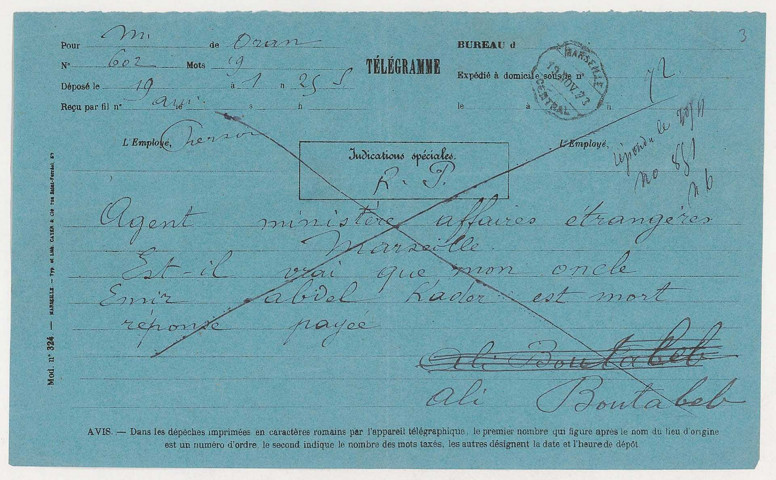 3
Pour M. de Oran
N° 602 Mots 19
Déposé le 19 à 1 h 25 S
Reçu par fil n° le à h
L'Employé,
TÉLÉGRAMME
BUREAU d
Expédié à domicile sous le n° 72
le à h
L'Employé,
MARSEILLE
19 NOV. 73
CENTRAL
répondu le
no 851
Indications spéciales.
R. P.
Agent ministère affaires étrangères
Marseille.
Est-il vrai que mon oncle
Emir abdel Kader est mort
réponse payée
Ali Boutabeb
Ali Boutabeb
Mod. n° 324 — MARSEILLE — Typ. et Lith. CAYER & Cie rue Saint-Ferréol, 57
AVIS. — Dans les dépêches imprimées en caractères romains par l'appareil télégraphique, le premier nombre qui figure après le nom du lieu d'origine
est un numéro d'ordre, le second indique le nombre des mots taxés, les autres désignent la date et l'heure de dépôt.